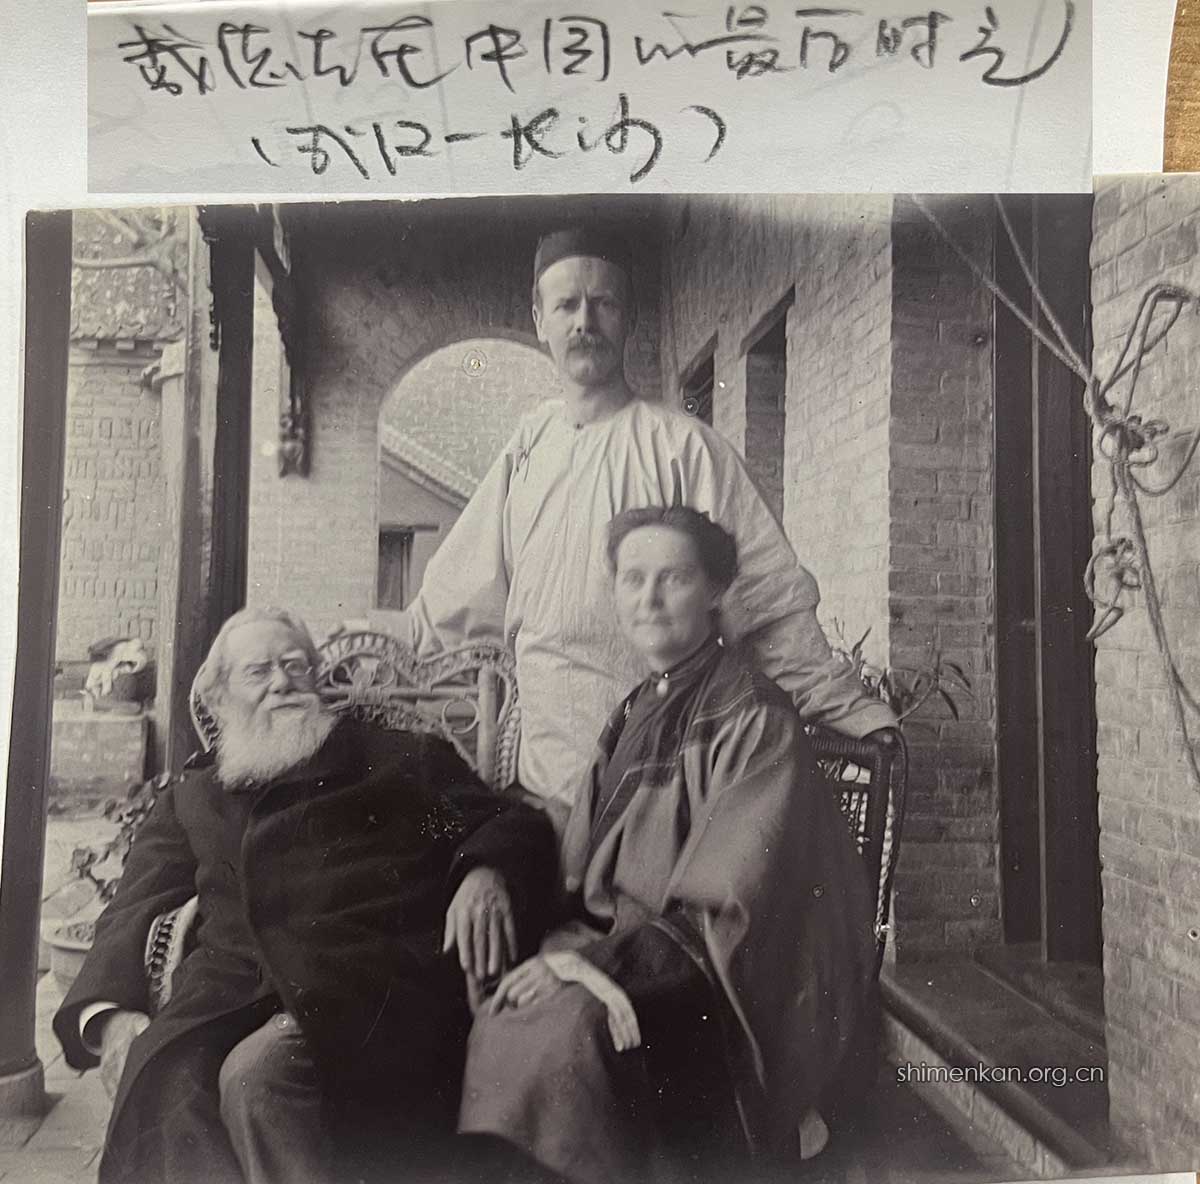 戴德生在中国的最后时刻
(汉口一长沙)
shimenkan.org.cn